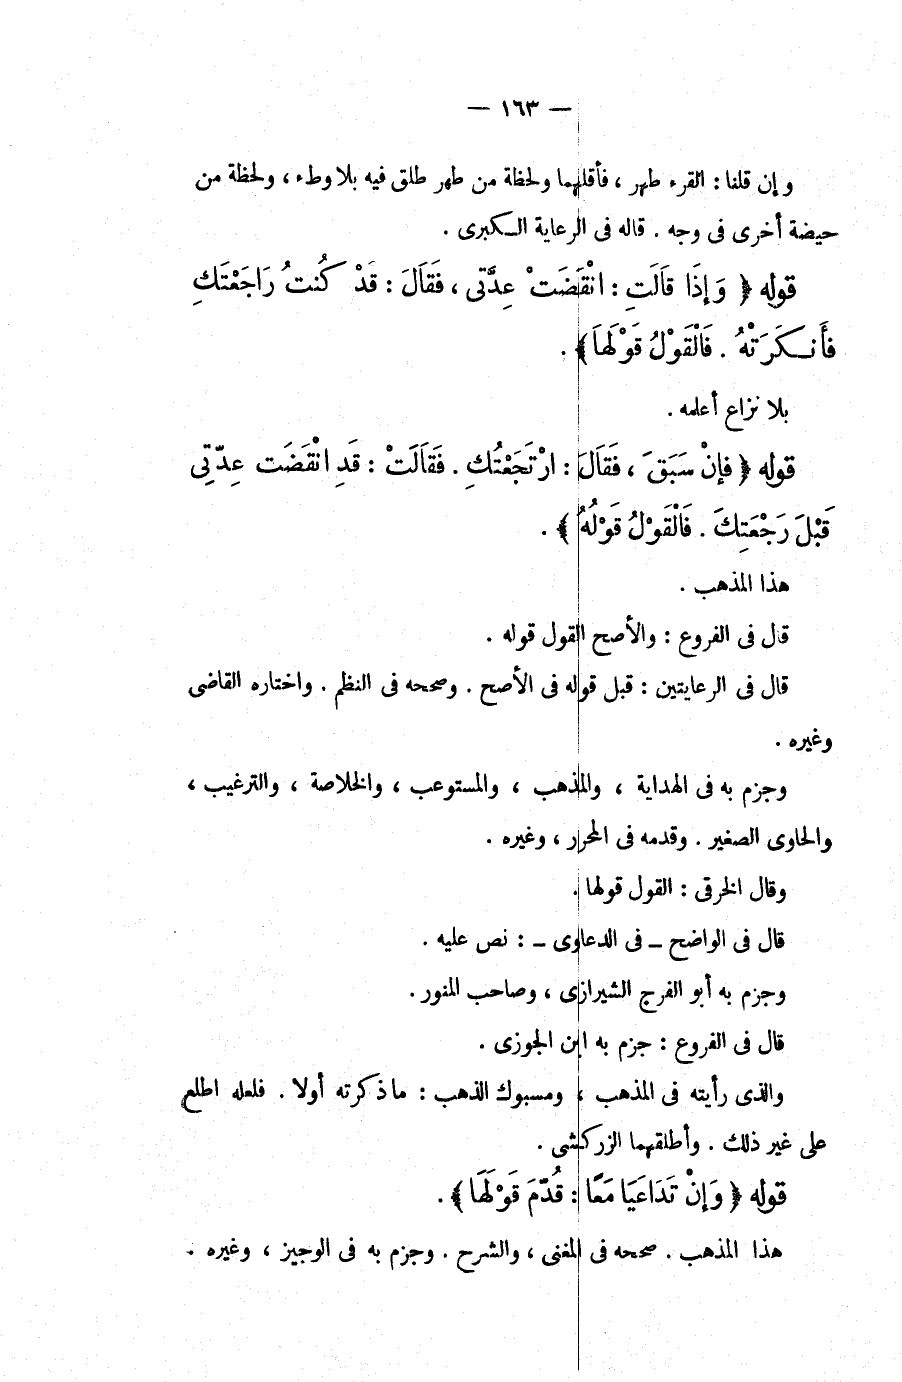 — ١٦٣ —
و إن قلنا : القرء طهر ، فأقلهما ولحظة من طهر طلق فيه بلا وطء ، ولحظة من
حيضة أخرى فى وجه . قاله فى الرعاية الكبرى .
قوله ﴿ وَإِذَا قَالَتِ : انْقَضَتْ عِدَّتِى ، فَقَالَ : قَدْ كُنتُ رَاجَعْتَكِ
فَأَنكَرَتْهُ . فَالْقَوْلُ قَوْلَهَا ﴾ .
بلا نزاع أعلمه .
قوله ﴿ فإنْ سَبَقَ ، فَقَالَ : ارْتَجَعْتُكِ . فَقَالَتْ : قَدِ انْقَضَت عِدّتِى
قَبْلَ رَجْعَتِكَ . فَالْقَوْلُ قَوْلُهُ ﴾ .
هذا المذهب .
قال فى الفروع : والأصح القول قوله .
قال فى الرعايتين : قبل قوله فى الأصح . وصححه فى النظم . واختاره القاضى
وغيره .
وجزم به فى الهداية ، والمذهب ، والمستوعب ، والخلاصة ، والترغيب ،
والحاوى الصغير . وقدمه فى المحرر ، وغيره .
وقال الخرقى : القول قولها .
قال فى الواضح ــ فى الدعاوى ــ : نص عليه .
وجزم به أبو الفرج الشيرازى ، وصاحب المنور .
قال فى الفروع : جزم به ابن الجوزى .
والذى رأيته فى المذهب ، ومسبوك الذهب : ما ذكرته أولا . فلعله اطلع
على غير ذلك . وأطلقهما الزركشى .
قوله ﴿ وَإِنْ تَدَاعَيَا مَعًا : قُدّمَ قَوْلَهَا ﴾ .
هذا المذهب . صححه فى المغنى ، والشرح . وجزم به فى الوجيز ، وغيره .